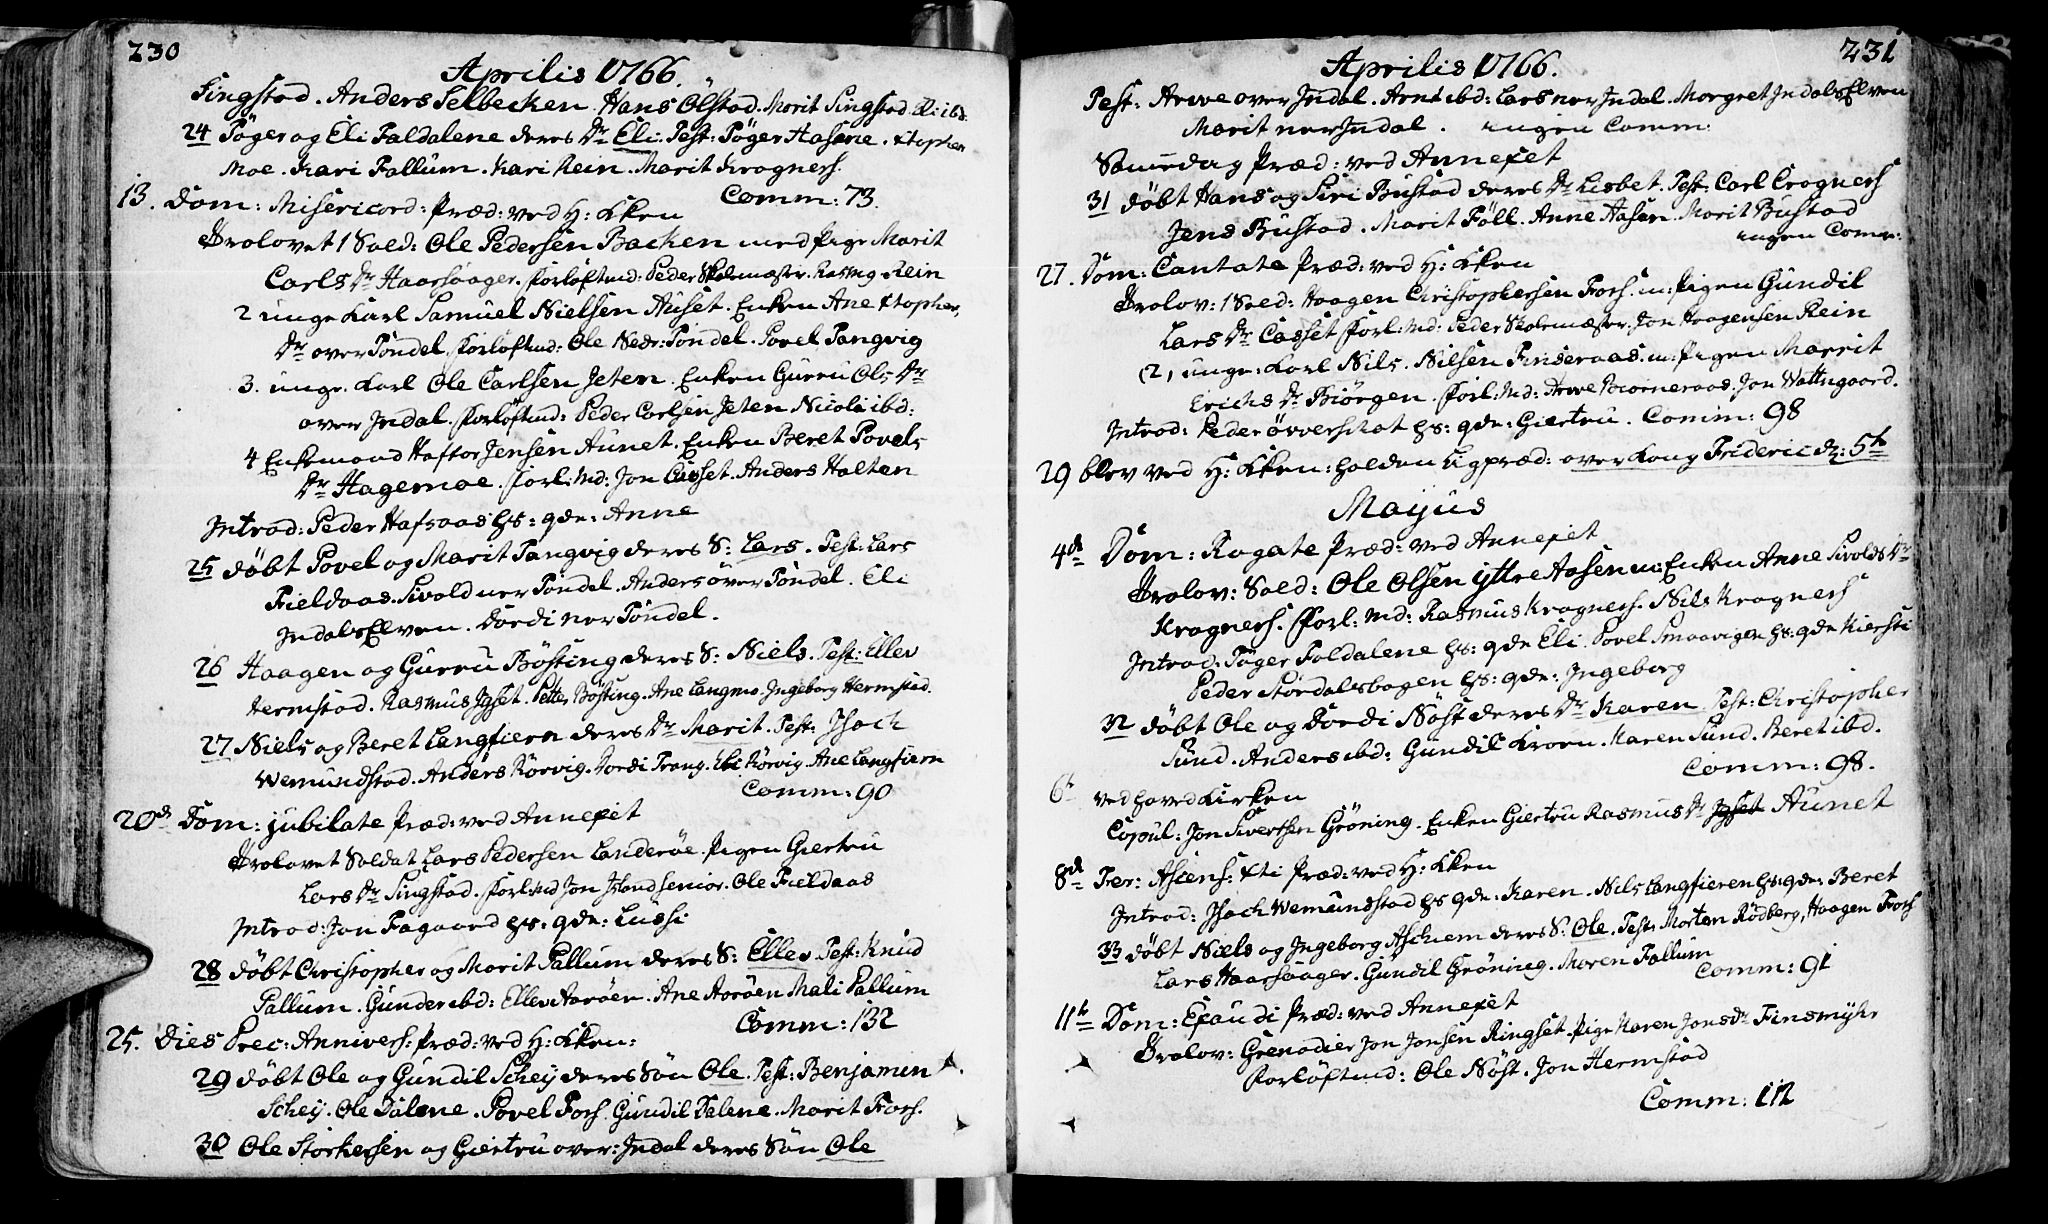 230
Aprilis 1766.
Singstad. Anders Selbecken. Hans Ölstad. Marit Singstad. Eli ibd:
24 Töger og Eli Foldalene deres Dr Eli. Test: Töger Hafsene. Xtopher
Moe. Kari Follum. Kari Rein. Marit Krogners.
Comm: 73.
13. Dom: Misericord: Præd: ved H: Kken
Trolovet 1 Sold: Ole Pedersen Backen med Pige Marit
Carls Dr Haarsaager. Forlöftmd: Peder Skolemester. Rasmg Rein
2 unge Karl Samuel Nielsen Auset. Enken Ane Xtophers
Dr over Töndel. Forlöftmd: Ole Nedr: Töndel. Povel Tangvig
3. unge Karl Ole Carlsen Jeten. Enken Gurru Ols Dr
over Jndal. Forlöftmd: Peder Carlsen Jeten Nicoli ibd:
4 Enkemand Haftor Jensen Aunet. Enken Beret Povels
Dr Hagemoe. Forl: Md: Jon Casset. Anders Holten
Introd: Peder Hafsaas hs: qde: Anne
25 döbt Povel og Marit Tangvig deres S: Lars. Test: Lars
Fieldaas. Sivold ner Töndel. Anders över Töndel. Eli
Jndals Elven. Dordi ner Töndel.
26 Haagen og Gurru Bösting deres S: Niels. Test: Ellev
Hermstad. Rasmus Jgset. Petter Bösting. Ane Langmo. Jngeborg Hermstad.
27 Niels og Beret Langfiern deres Dr Marit. Test: Jsach
Wemundstad. Anders Rörvig. Dordi Trang. Eli Rörvig. Ane Langfiern
Comm: 90
20de Dom: jubilate Præd: ved Annexet
Trolovet Soldat Lars Pedersen Landeröe. Pigen Giertru
Lars Dr Singstad. Forl: Md Jon Jsland senior. Ole Fieldaas
Introd: Jon Fagaard hs: qde: Lussi
28 döbt Christopher og Marit Pallum deres S: Ellev. Test: Knud
Pallum. Gunder ibd: Ellev Aoröen. Ane Aoröen Mali Pallum
Comm: 132
25. Dies Prec: Annivers: Præd: ved H: Kken:
29 döbt Ole og Gundil Schey deres Sön Ole. Test: Benjamin
Schey. Ole Dalene. Povel Fors. Gundil Dalene. Marit Fors.
30 Ole Storkersen og Giertru over: Jndal deres Sön Ole
231
Aprilis 1766.
Test: Arve over Jndal. Arnt ibd: Lars ner Jndal. Margret Jndals Elven
Marit ner Jndal. ingen Comm:
Samedag Præd: ved Annexet
31 döbt Hans og Siri Bustad deres Dr Lisbet. Test: Carl Crogners
Jens Bustad. Marit Föll. Anne Aasen. Marit Bustad
ingen Comm:
27. Dom: Cantate Præd: ved H: Kken
Trolov: 1 Sold: Haagen Christophersen Fors. m: Pigen Gundil
Lars Dr Casset Forl: Md: Peder Skolemester. Jon Haagensen Rein
(2, unge: Karl Nils. Nilsen Finseraas. m: Pigen Marrit
Erichs Dr Biörgen. Forl: Md: Arve Biörneraas. Jon Wattngaard.
Introd: Peder Öwerschot hs: qde: Giertru. Comm: 98
29 blev ved H: Kken: holden Ligpræd: over Kong Frideric dz: 5te
Majus
4de Dom: Rogate Præd: ved Annexet
Trolov: Sold: Ole Olsen yttre Aasen m: Enken Anne Sivolds Dr
Krogners. Forl: Md: Rasmus Krogners. Nils Krogners
Introd: Töger Foldalene hs: qde Eli. Povel Smaavigen hs: qde Kiersti
Peder Stördalsbagen hs: qde: Jngeborg
32 döbt Ole og Dordi Nöst deres Dr Karen. Test: Christopher
Sund. Anders ibd: Gundil Kroen. Karen Sund. Beret ibd.
Comm: 98.
6te ved Hoved Kirken
Copul: Jon Sivertsen Gröning. Enken Giertru Rasmus Dr Jgset Aunet
8de Fer: Ascens: Xti Præd: ved H: Kken
Introd: Jsach Wemundstad hs qde: Karen. Nils Langfieren hs: qde: Beret
33 döbt Niels og Jngeborg Aschiem deres S: Ole. Test: Morten Rödberg, Haagen Fors
Lars Haarsaager. Gundil Gröning. Maren Follum
Comm: 91
11te Dom: Exaudi Præd: ved Annexet
Trolov: Grenadier Jon Jonsen Ringset. Pige Karen Jons Dr Finsmyhr
Forlöftmd: Ole Nöst. Jon Hermstad
Comm: 112